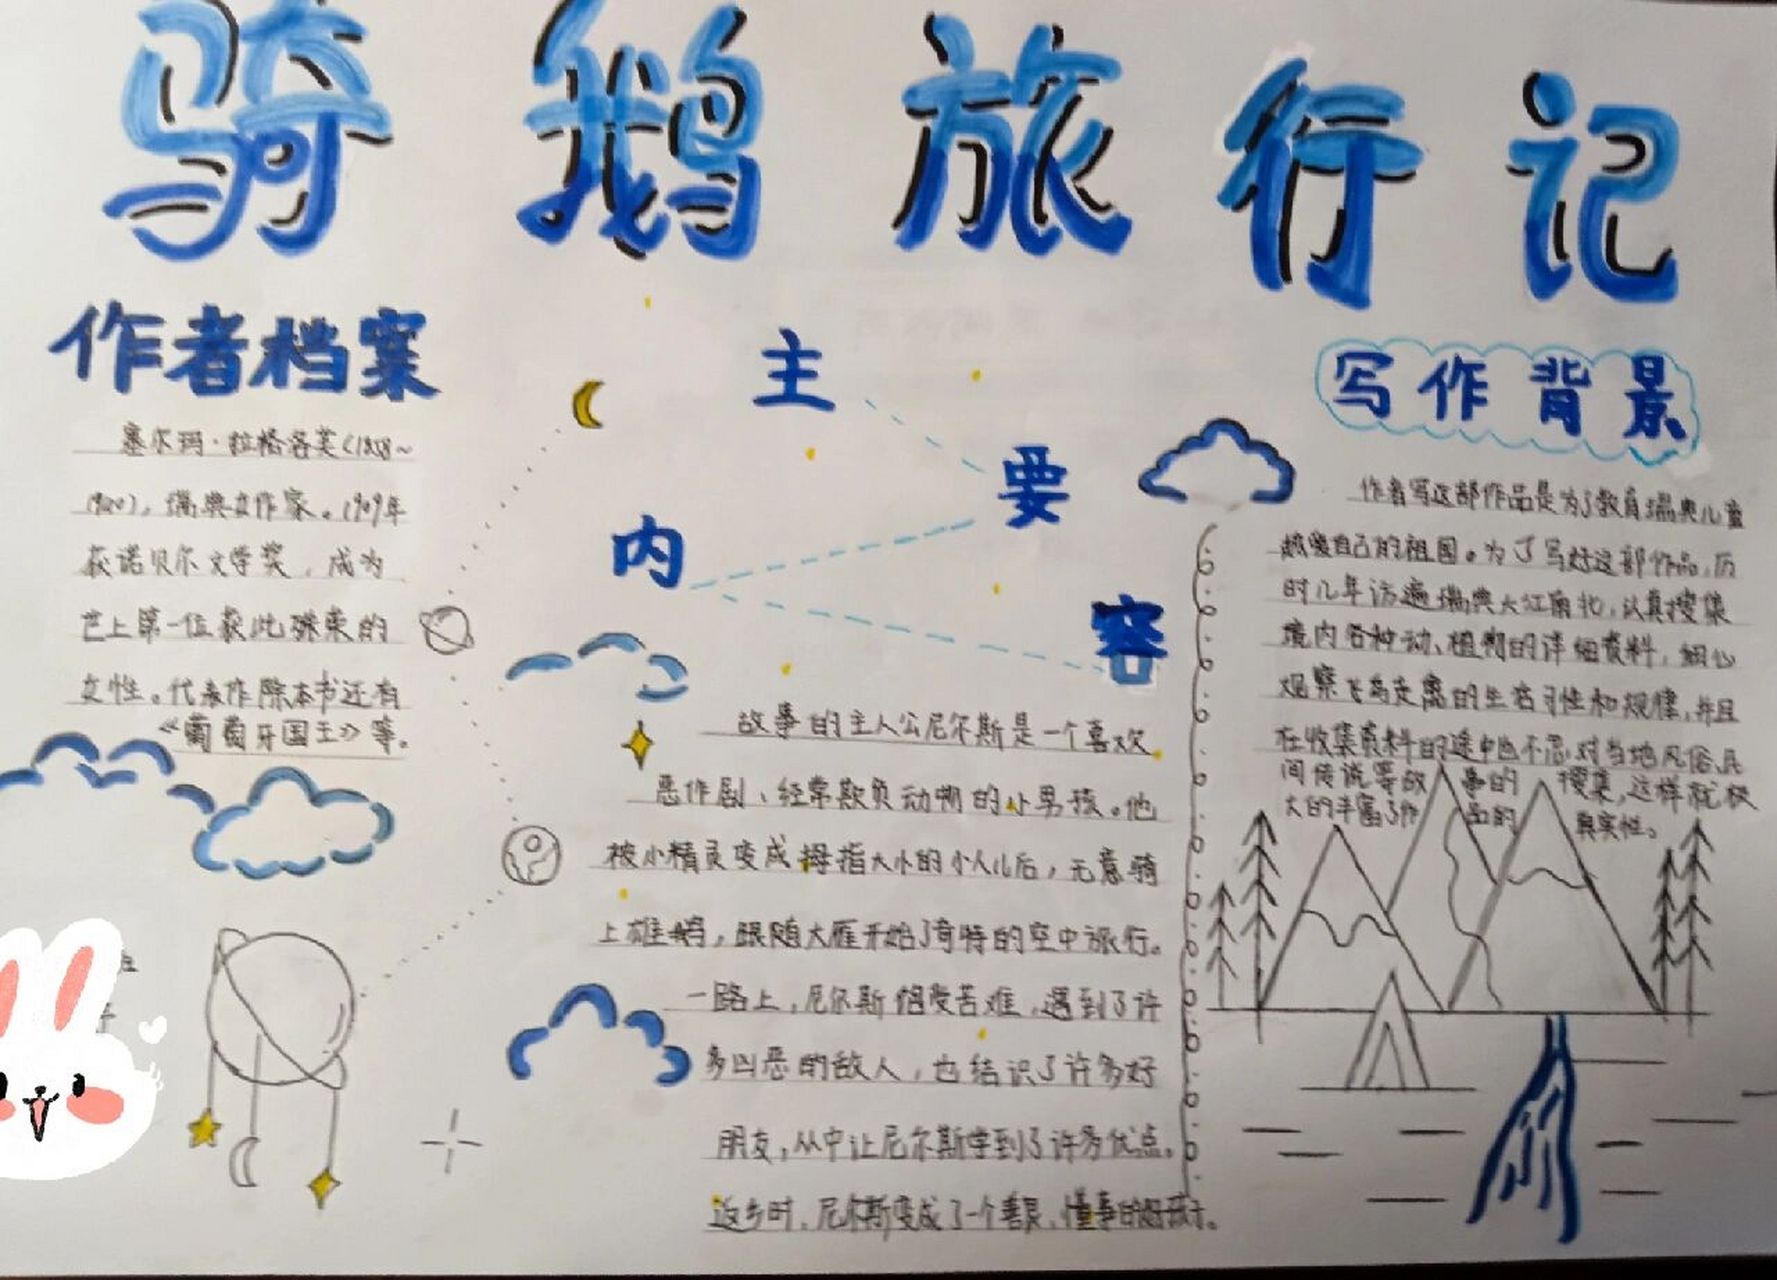 骑鹅旅行记
作者档案
塞尔玛·拉格洛芙(1858~
1940),瑞典女作家。1909年
获诺贝尔文学奖,成为
世上第一位获此殊荣的
女性。代表作除本书还有
《葡萄牙国王》等。
主要内容
故事的主人公尼尔斯是一个喜欢
恶作剧、经常欺负动物的小男孩。他
被小精灵变成拇指大小的小人儿后,无意骑
上雄鹅,跟随大雁开始了奇特的空中旅行。
一路上,尼尔斯饱受苦难,遇到了许
多凶恶的敌人,也结识了许多好
朋友,从中让尼尔斯学到了许多优点。
返乡时,尼尔斯变成了一个善良、懂事的好孩子。
写作背景
作者写这部作品是为了教育瑞典儿童
热爱自己的祖国。为了写好这部作品,历
时几年访遍瑞典大江南北,认真搜集
境内各种动、植物的详细资料,细心
观察飞鸟走禽的生活习性和规律,并且
在收集资料的途中也不忘对当地风俗、民
间传说等故事的搜集,这样就极
大的丰富了作品的真实性。